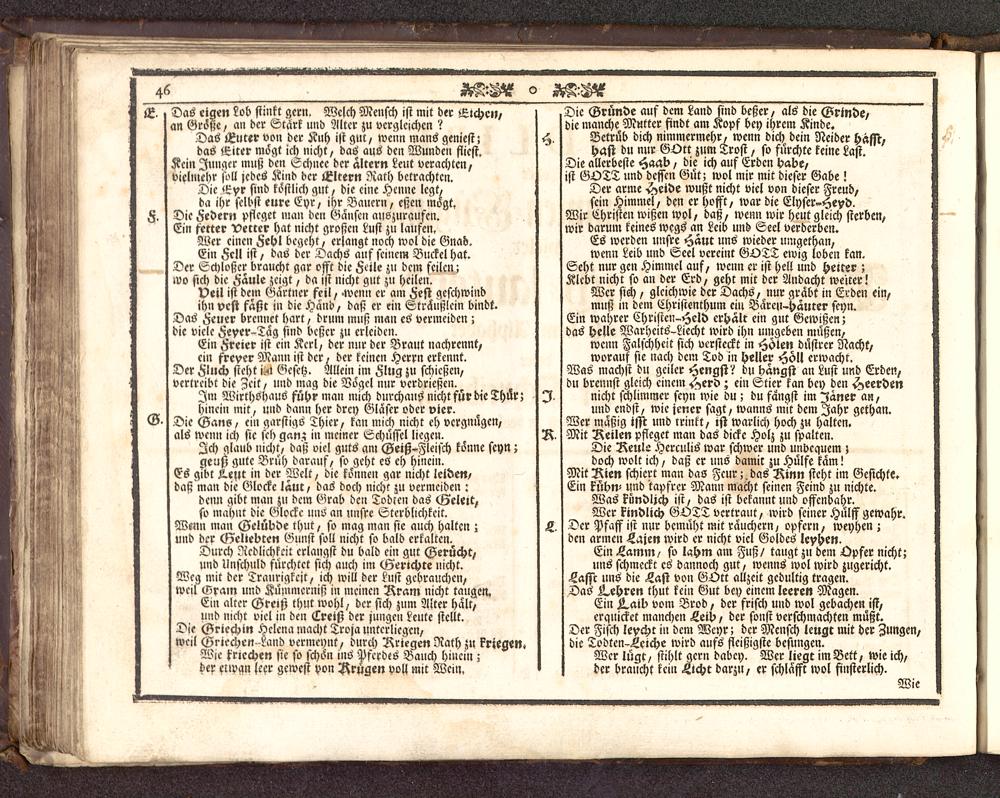 46
E. Das eigen Lob stinkt gern. Welch Mensch ist mit der Eichen,
an Größe, an der Stärk und Alter zu vergleichen?
Das Euter von der Kuh ist gut, wenn mans geniest;
das Eiter mögt ich nicht, das aus den Wunden fliest.
Kein Junger muß den Schnee der ältern Leut verachten,
vielmehr soll jedes Kind der Eltern Rath betrachten.
Die Eyr sind köstlich gut, die eine Henne legt,
da ihr selbst eure Eyr, ihr Bauern, eßen mögt.
F. Die Federn pfleget man den Gänsen auszuraufen.
Ein fetter Vetter hat nicht großen Lust zu laufen.
Wer einen Fehl begeht, erlangt noch wol die Gnad.
Ein Fell ist, das der Dachs auf seinem Buckel hat.
Der Schloßer braucht gar offt die Feile zu dem feilen;
wo sich die Fäule zeigt, da ist nicht gut zu heilen.
Veil ist dem Gärtner feil, wenn er am Fest geschwind
ihn vest faßt in die Händ, daß er ein Sträußlein bindt.
Das Feuer brennet hart, drum muß man es vermeiden;
die viele Feyer-Täg sind beßer zu erleiden.
Ein Freier ist ein Kerl, der nur der Braut nachrennt,
ein freyer Mann ist der, der keinen Herrn erkennt.
Der Fluch steht im Gesetz. Allein im Flug zu schießen,
vertreibt die Zeit, und mag die Vögel nur verdrießen.
Im Wirthshaus führ man mich durchaus nicht für die Thür;
hinein mit, und dann her drey Gläser oder vier.
G. Die Gans, ein garstigs Thier, kan mich nicht eh vergnügen,
als wenn ich sie seh ganz in meiner Schüssel liegen.
Ich glaub nicht, daß viel guts am Geiß-Fleisch könne seyn;
geuß gute Brüh darauf, so geht es eh hinein.
Es gibt Leut in der Welt, die können gar nicht leiden,
daß man die Glocke läut, das doch nicht zu vermeiden;
denn gibt man zu dem Grab den Todten das Geleit,
so mahnt die Glocke uns an unsre Sterblichkeit.
Wenn man Gelübde thut, so mag man sie auch halten;
und der Geliebten Gunst soll nicht so bald erkalten.
Durch Redlichkeit erlangst du bald ein gut Gerücht,
und Unschuld fürchtet sich auch im Gerichte nicht.
Weg mit der Traurigkeit, ich will der Lust gebrauchen,
weil Gram und Kümmerniß in meinen Kram nicht taugen.
Ein alter Greiß thut wohl, der sich zum Alter hält,
und nicht viel in den Creiß der jungen Leute stellt.
Die Griechin Helena macht Troja unterliegen,
weil Griechen-Land vermeynt, durch Kriegen Rath zu kriegen.
Wie kriechen sie so schön ins Pferdes Bauch hinein;
der etwan leer gewest von Krügen voll mit Wein.
Die Gründe auf dem Land sind beßer, als die Grinde,
die manche Mutter findt am Kopf bey ihrem Kinde.
H. Betrüb dich nimmermehr, wenn dich dein Neider häßt,
hast du nur GOtt zum Trost, so fürchte keine Last.
Die allerbeste Haab, die ich auf Erden habe,
ist GOTT und dessen Güt; wol mir mit dieser Gabe!
Der arme Heide wußt nicht viel von dieser Freud,
sein Himmel, den er hofft, war die Elyser-Heyd.
Wir Christen wißen wol, daß, wenn wir heut gleich sterben,
wir darum keines wegs an Leib und Seel verderben.
Es werden unsre Häut uns wieder umgethan,
wenn Leib und Seel vereint GOTT ewig loben kan.
Seht nur gen Himmel auf, wenn er ist hell und heiter;
Klebt nicht so an der Erd, geht mit der Andacht weiter!
Wer sich, gleichwie der Dachs, nur gräbt in Erden ein,
muß in dem Christenthum ein Bären-häuter seyn.
Ein wahrer Christen-Held erhält ein gut Gewißen;
das helle Warheits-Liecht wird ihn umgeben müßen,
wenn Falschheit sich versteckt in Hölen düstrer Nacht,
worauf sie nach dem Tod in heller Höll erwacht.
Was machst du geiler Hengst? du hängst an Lust und Erden,
du brennst gleich einem Herd; ein Stier kan bey den Heerden
J. nicht schlimmer seyn wie du; du fängst im Jäner an,
und endst, wie jener sagt, wanns mit dem Jahr gethan.
Wer mäßig isst und trinkt, ist warlich hoch zu halten.
K. Mit Keilen pfleget man das dicke Holz zu spalten.
Die Keule Herculis war schwer und unbequem;
doch wolt ich, daß er uns damit zu Hülfe käm!
Mit Kien schiert man das Feur; das Kinn steht im Gesichte.
Ein kühn- und tapfrer Mann macht seinen Feind zu nichte.
Was kündlich ist, das ist bekannt und offenbahr.
Wer kindlich GOTT vertraut, wird seiner Hülff gewahr.
L. Der Pfaff ist nur bemüht mit räuchern, opfern, weyhen;
den armen Lajen wird er nicht viel Goldes leyhen.
Ein Lamm, so lahm am Fuß/ taugt zu dem Opfer nicht;
uns schmeckt es dannoch gut, wenns wol wird zugericht.
Lasst uns die Last von GOtt allzeit gedultig tragen.
Das Lehren thut kein Gut bey einem leeren Magen.
Ein Laib vom Brod, der frisch und wol gebachen ist,
erquicket manchen Leib, der sonst verschmachten müßt.
Der Fisch leycht in dem Weyr; der Mensch leugt mit der Zungen,
die Todten-Leiche wird aufs fleißigste besungen.
Wer lügt, stihlt gern dabey. Wer liegt im Bett, wie ich,
der braucht kein Licht darzu, er schläfft wol finsterlich.
Wie